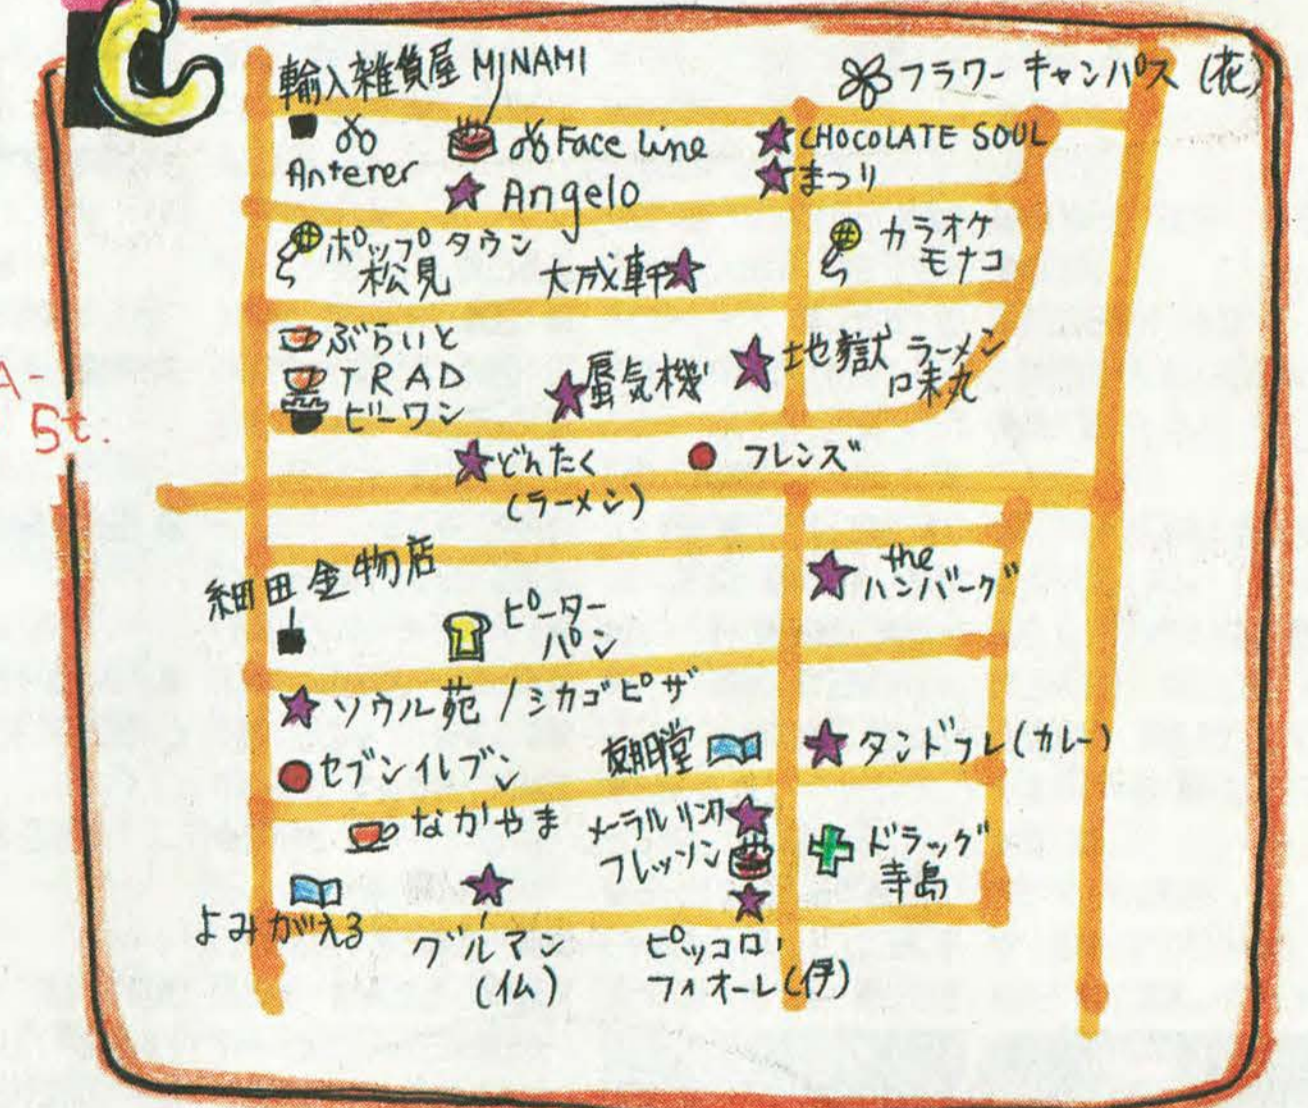 C
輸入雑貨屋 MINAMI
フラワー キャンパス (花)
Antener
Face Line
CHOCOLATE SOUL
Angelo
まつり
ポップ タウン
松見
大成軒
カラオケ
モナコ
ぶらいと
TRAD
ビーワン
蜃気機
地獄ラーメン
味丸
A-
St.
どんたく
(ラーメン)
フレンズ
細田金物店
ピーター
パン
the
ハンバーグ
ソウル苑 / シカゴピザ
セブンイレブン
友朋堂
タンドフレ (カレー)
なかやま
メーラルリンク
フレッソン
ドラッグ
寺島
よみがえる
グルマン
(仏)
ピッコロ・
フィオーレ(伊)